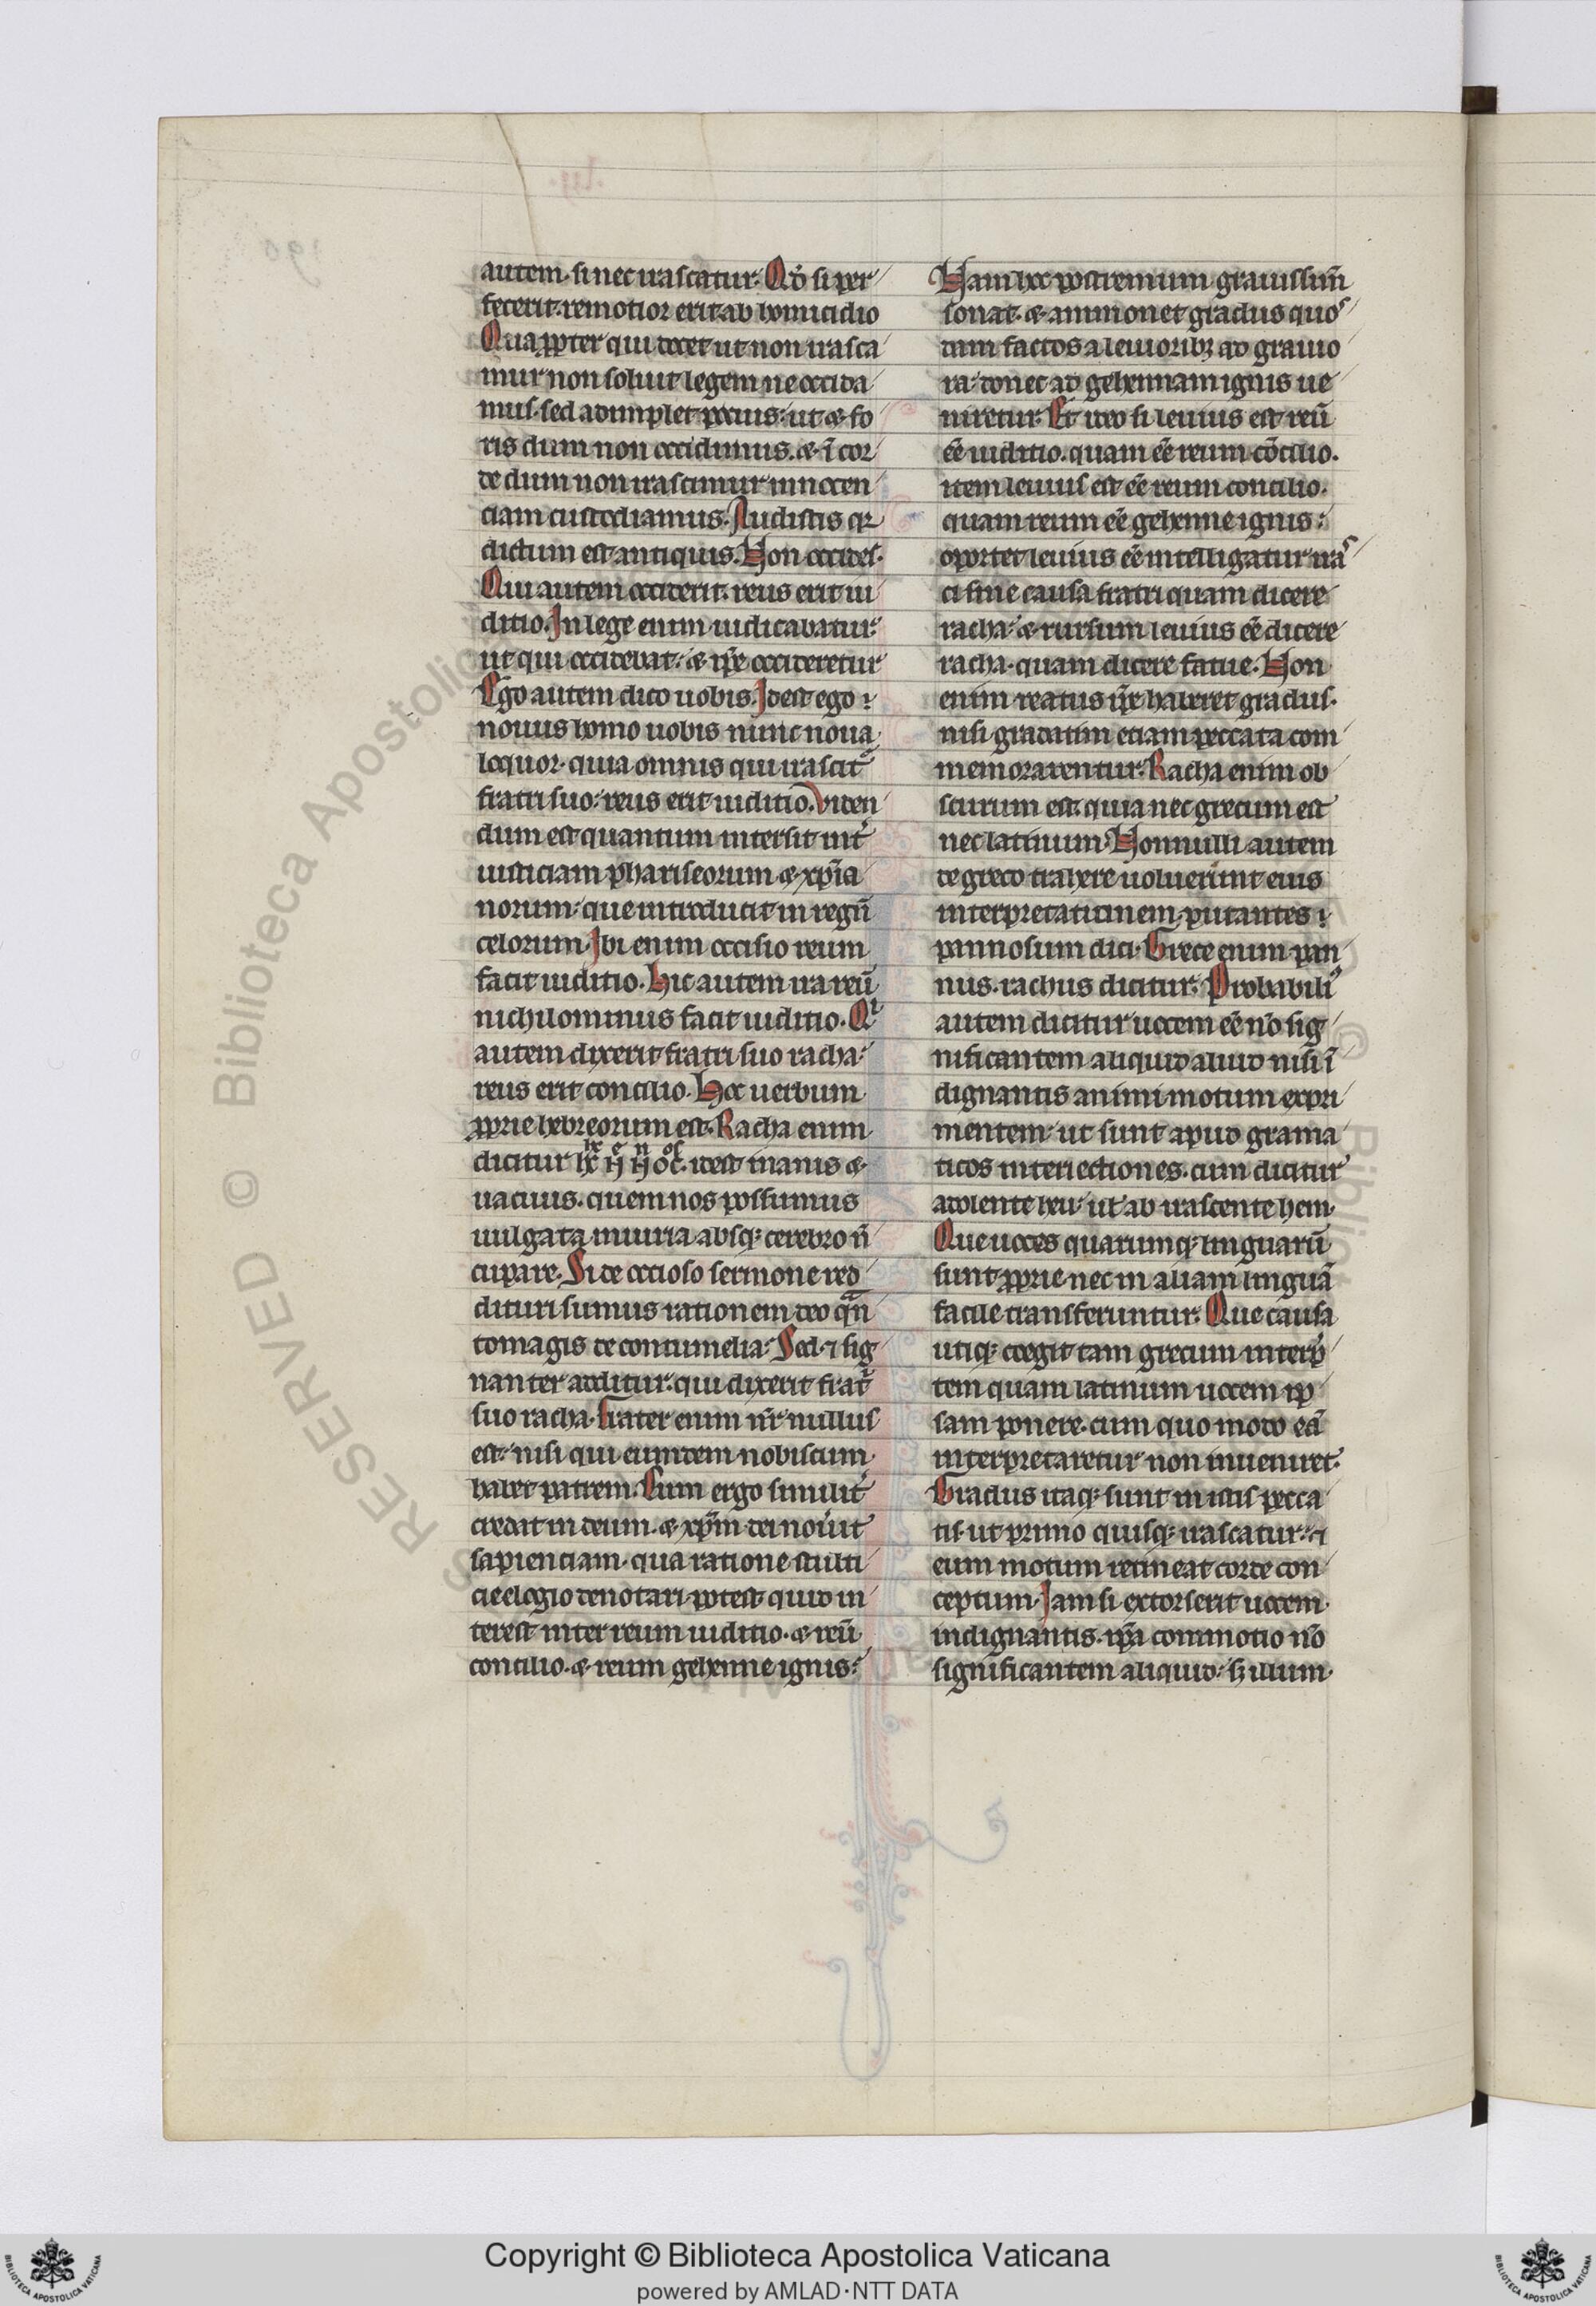 autem. si nec irascatur. Qđ si per
fecerit. remotior erit ab homicidio
Quapp̄ter qui docet ut non irasca
mur non soluit legem ne occida
mus. sed adimplet pocius. ut & fo
ris dum non occidimus. & ī cor
de dum non irascimur innocen
ciam custodiamus. Audistis qr
dictum est antiquis. Non occides.
Qui autem occiderit. reus erit iu
ditio. In lege enim iudicabatur.
ut qui occidebat. & ip̄e occideretur
Ego autem dico uobis. Idest ego.
nouus homo uobis nunc noua
loquor. quia omnis qui irascit᷑
fratri suo. reus erit iuditio. Viden
dum est quantum intersit int̾
iusticiam phariseorum & xp̄ia
norum. que introducit in regnū
celorum. Ibi enim occisio reum
facit iuditio. Hic autem ira reū
nichilominus facit iuditio. Qͥ
autem dixerit fratri suo racha.
reus erit concilio. Hoc uerbum
ꝓprie hebreorum est. Racha enim
dicitur
idest inanis &
uacuus. quem nos possumus
uulgata iniuria absq; cerebro nū
cupare. Si de occioso sermone red
dituri sumus rationem deo qn̄
to magis de contumelia. Sed ⁊ sig
nanter additur. qui dixerit frat̾
suo racha. Frater enim nr̄ nullus
est. nisi qui eumdem nobiscum
habet patrem. Cum ergo similit̾
credat in deum. & xp̄m dei nouit
sapienciam. qua ratione stulti
cie elogio denotari potest quid in
terest inter reum iuditio. & reū
concilio. & reum gehenne ignis.
Nam hoc postremum grauissim̄
sonat. & ammonet gradus quos
dam factos a leuioribꝫ ad grauio
ra. donec ad gehennam ignis ue
niretur. Et ideo si leuius est reū
eē iuditio. quam eē reum cōcilio.
item leuius est eē reum concilio.
quam reum eē gehenne ignis.
oportet leuius eē intelligatur iras
ci sine causa fratri quam dicere
racha. & rursum leuius eē dicere
racha. quam dicere fatue. Non
enim reatus ip̄e haberet gradus.
nisi gradatim etiam peccata com
memorarentur. Racha enim ob
scurum est. quia nec grecum est
nec latinum. Nonnulli autem
de greco trahere uoluerunt eius
interpretationem. putantes.
pannosum dici. Grece enim pan
nus. rachus dicitur. Probabiliꝰ
autem dicitur uocem eē nō sig
nificantem aliquid aliud nisi ī
dignantis animi motum expri
mentem. ut sunt apud grama
ticos interiectiones. cum dicitur
a dolente heu. ut ab irascente hem.
Que uoces quarumq; linguarū
sunt ꝓprie. nec in aliam linguā
facile transferuntur. Que causa
utiq; coegit tam grecum interp̄
tem quam latinum uocem ip
sam ponere. cum quo modo eā
interpretaretur non inueniret.
Gradus itaq; sunt in istis pecca
tis. ut primo quisq; irascatur. ⁊
eum motum retineat corde con
ceptum. Iam si extorserit uocem
indignantis. ip̄a commotio nō
significantem aliquid. sꝫ illum
Copyright © Biblioteca Apostolica Vaticana
powered by AMLAD·NTT DATA